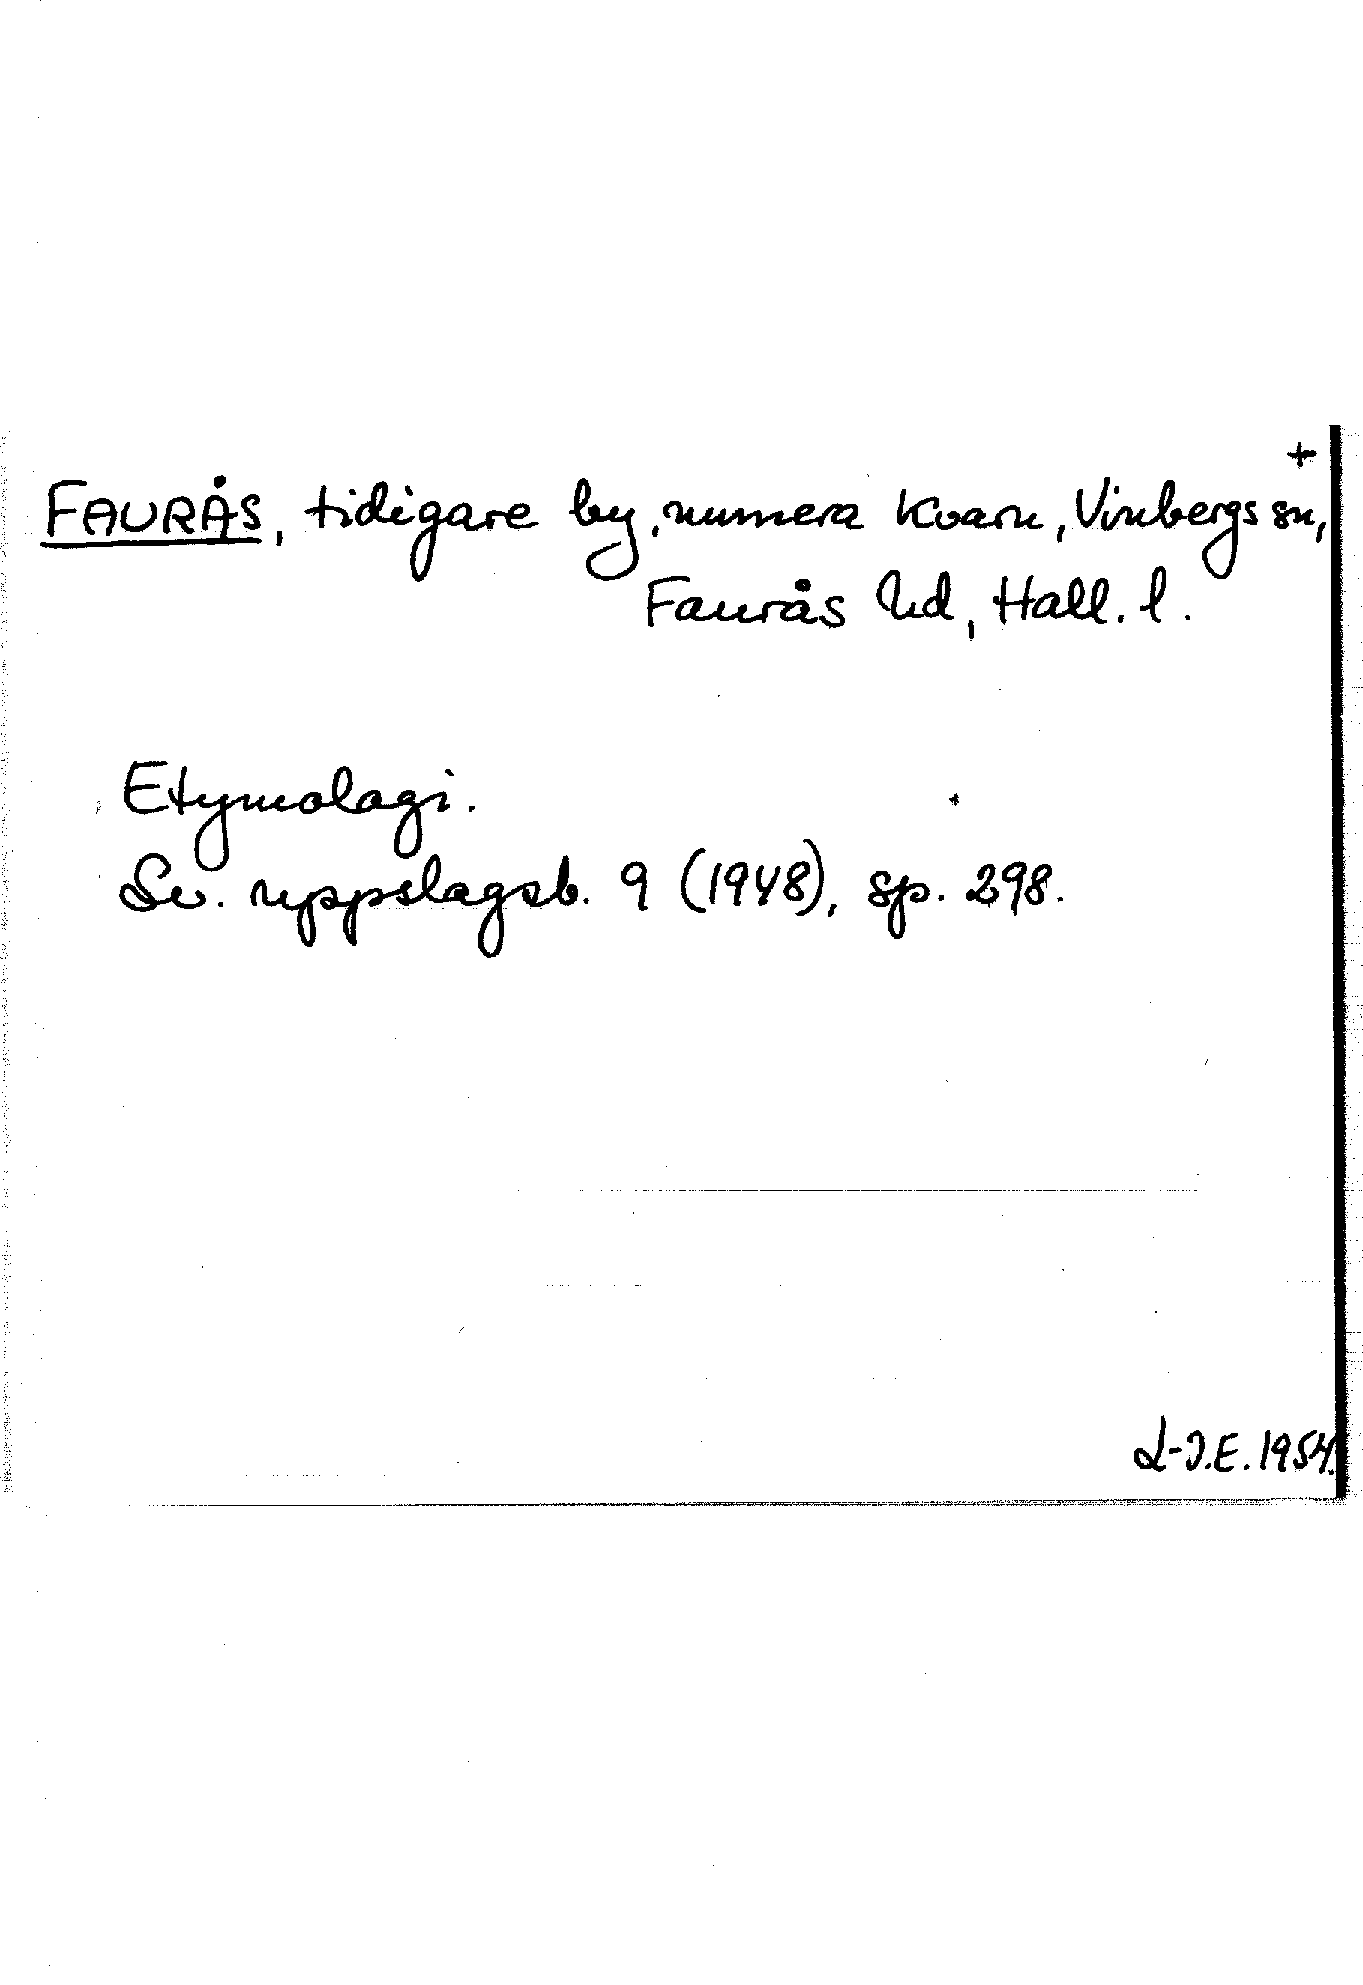 +
FAURÅS, tidigare by, numera kvarn, Vinbergs sn,
Faurås hd, Hall. l.
Etymologi.
Sv. uppslagsb. 9 (1948), sp. 298.
L-I.E. 1954.